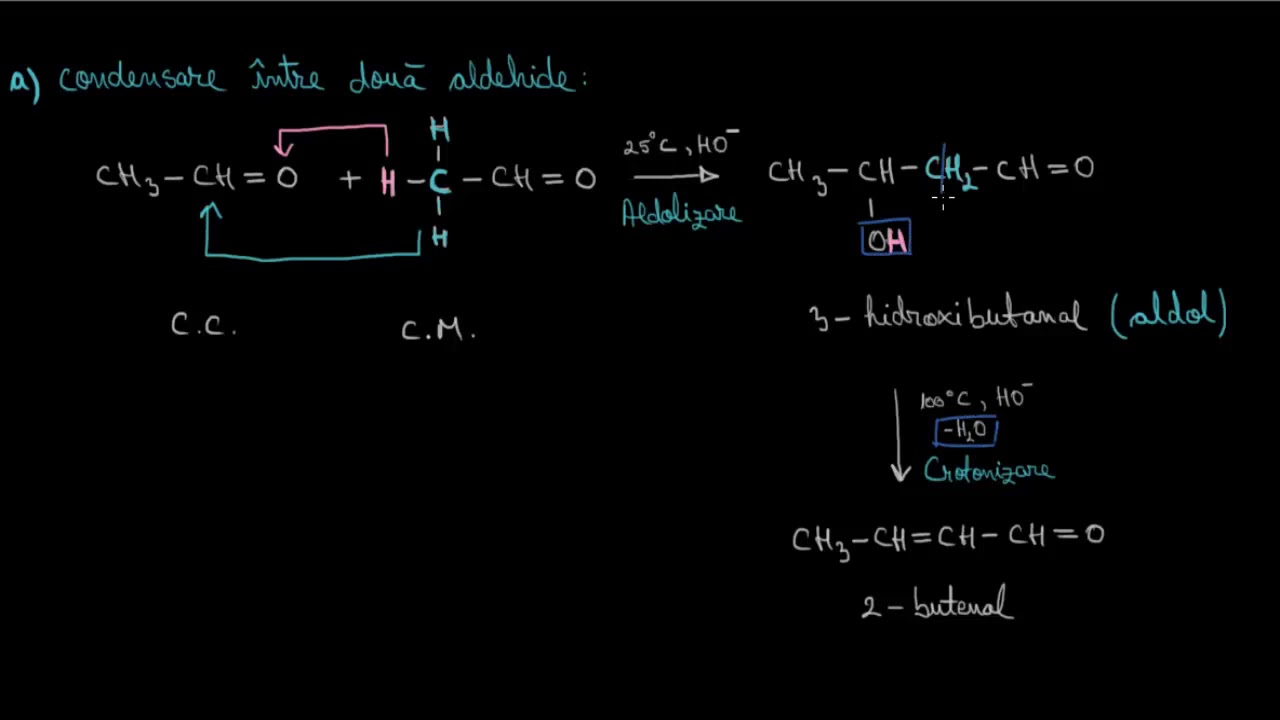 a) condensare între două aldehide:
H
CH₃-CH=O + H-C-CH=O 25°C, HO⁻ Aldolizare CH₃-CH-CH₂-CH=O
H OH
C.C. C.M.
3-hidroxibutanal (aldol)
100°C, HO⁻
-H₂O
Crotonizare
CH₃-CH=CH-CH=O
2-butenal